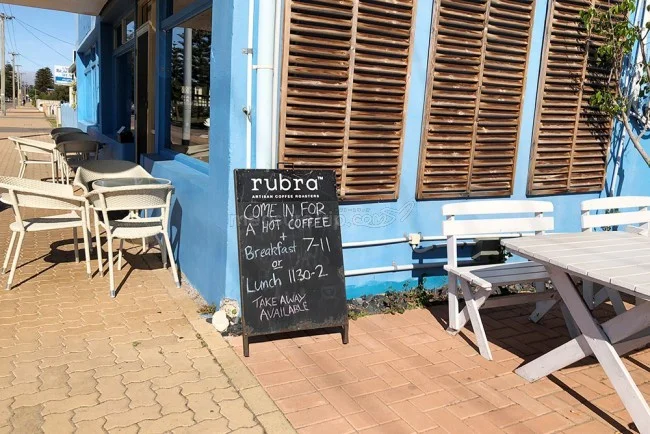 rubra™
ARTISAN COFFEE ROASTERS
COME IN FOR
A HOT COFFEE
+
Breakfast 7-11
or
Lunch 1130-2
TAKE AWAY
AVAILABLE